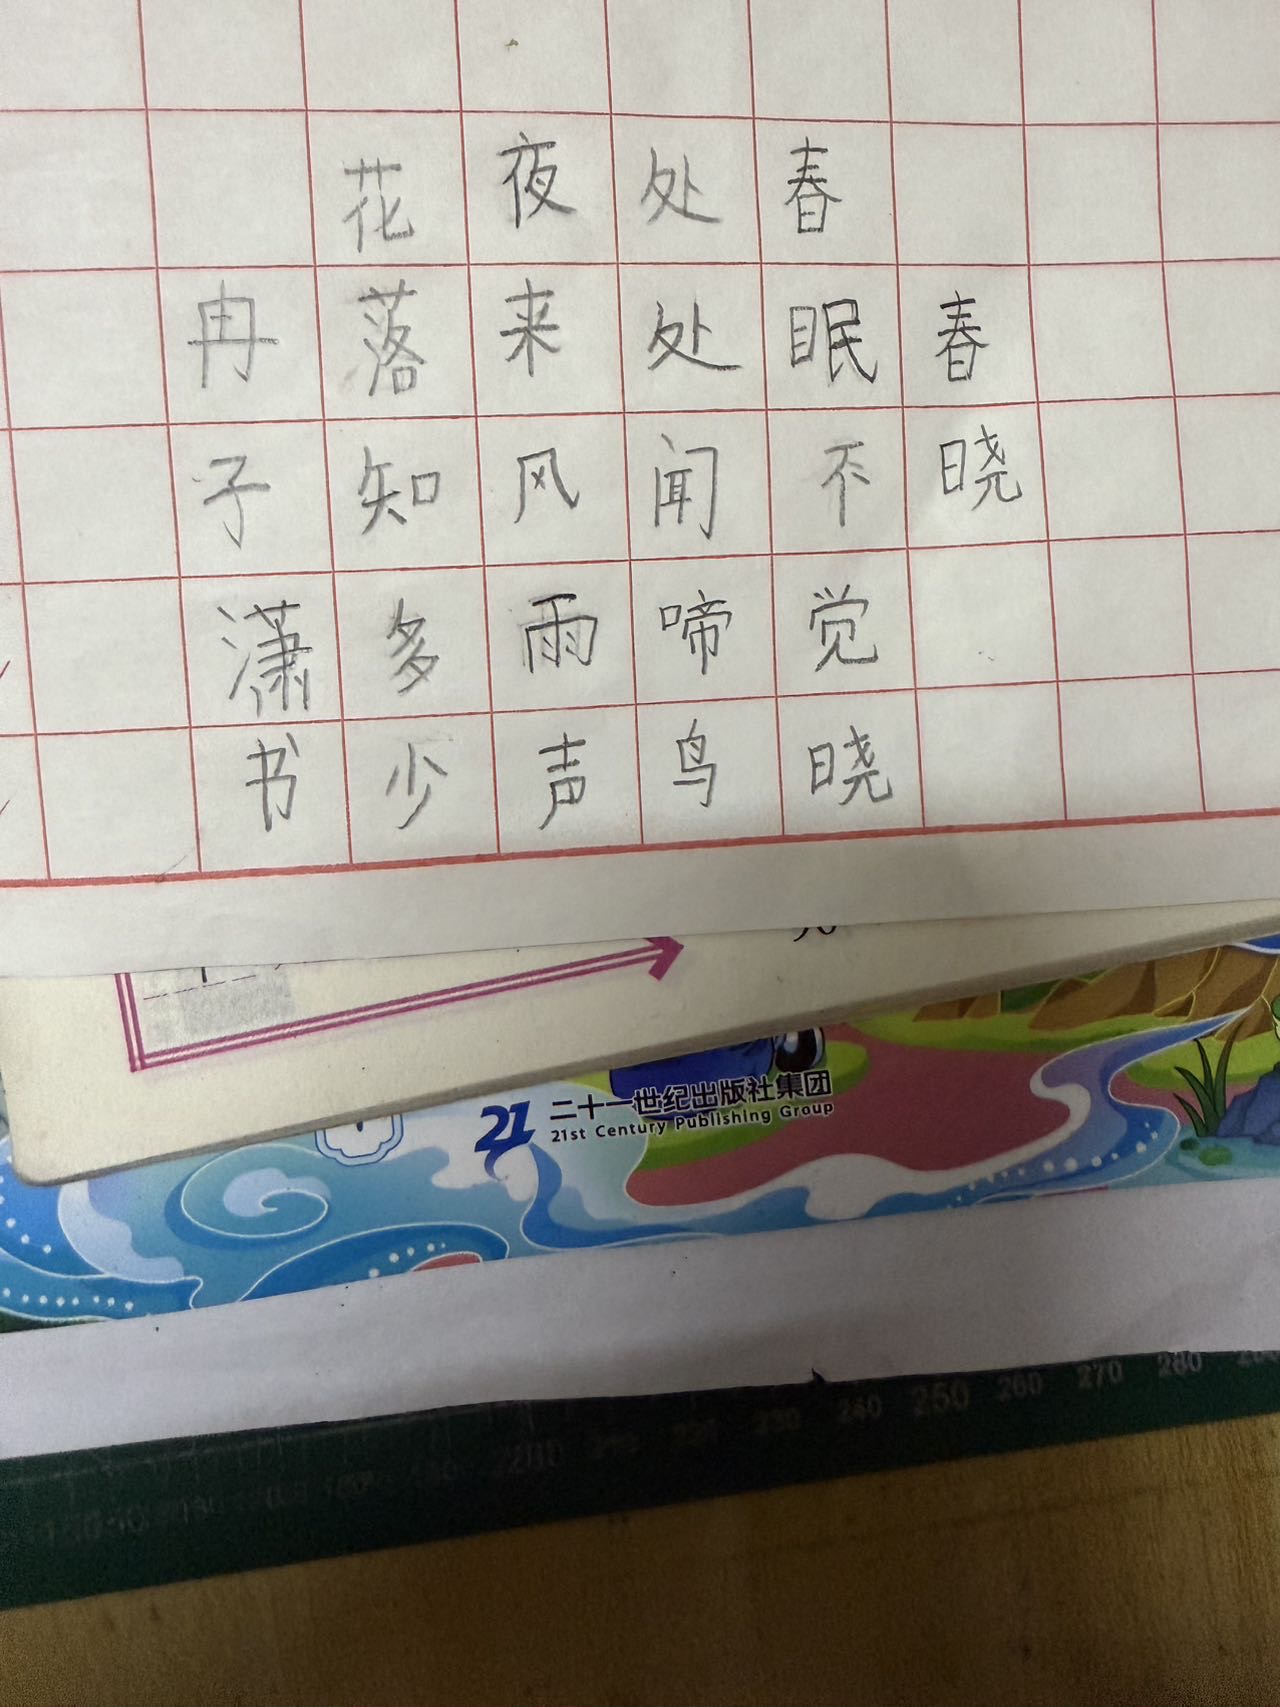 春晓
春眠不觉晓
处处闻啼鸟
夜来风雨声
花落知多少
冉子潇书
21 二十一世纪出版社集团
21st Century Publishing Group
230 240 250 260 270 280